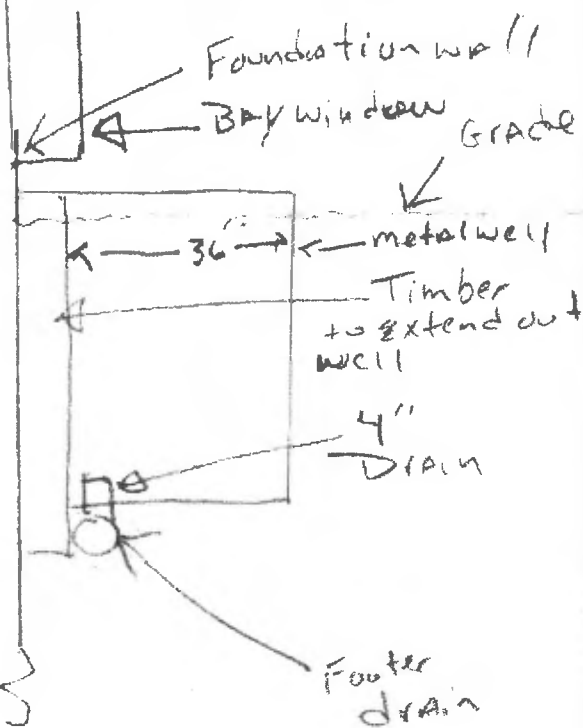 Foundation wall
Bay window
Grade
36"
metal well
Timber
to extend out
well
4"
Drain
Footer
drain